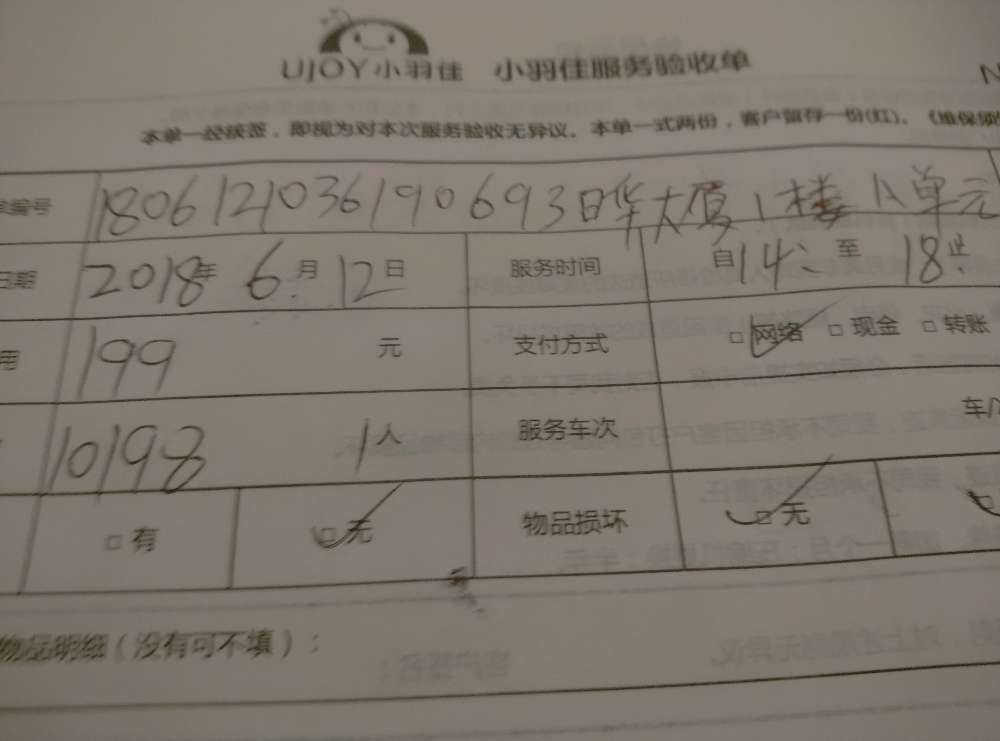 UJOY小羽佳 小羽佳服务验收单
本单一经续签，即视为对本次服务验收无异议。本单一式两份，客户留存一份(红)。
编号 180612103619０693日华大厦1楼A单元
日期 2018年 6月 12日 服务时间 自14: 至 18止
用 199 元 支付方式 □网络 □现金 □转账
10198 1人 服务车次 车
□有 □无 物品损坏 □无 □
物品明细（没有可不填）：